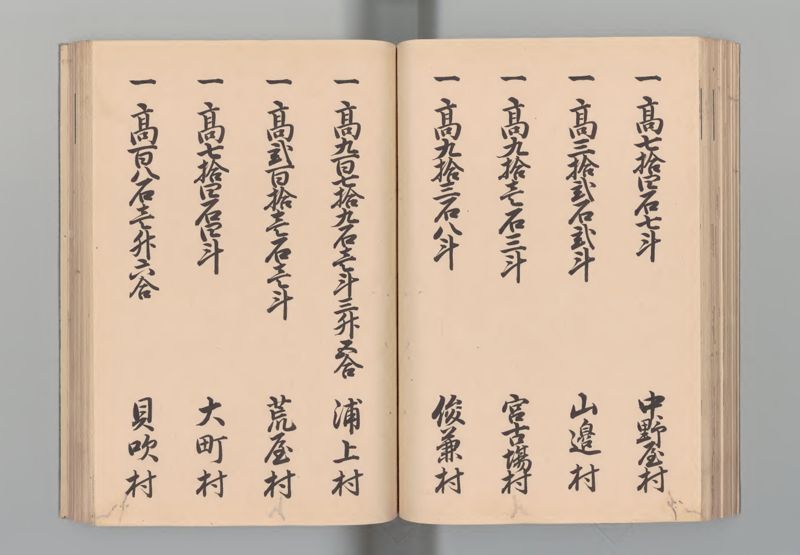 一 高七拾四石七斗 中野屋村
一 高三拾弐石弐斗 山邉村
一 高九拾壱石三斗 宮古場村
一 高九拾三石八斗 俊兼村
一 高九百七拾九石壱斗三升五合 浦上村
一 高弐百拾壱石壱斗 荒屋村
一 高七拾四石四斗 大町村
一 高百八石壱升六合 貝吹村